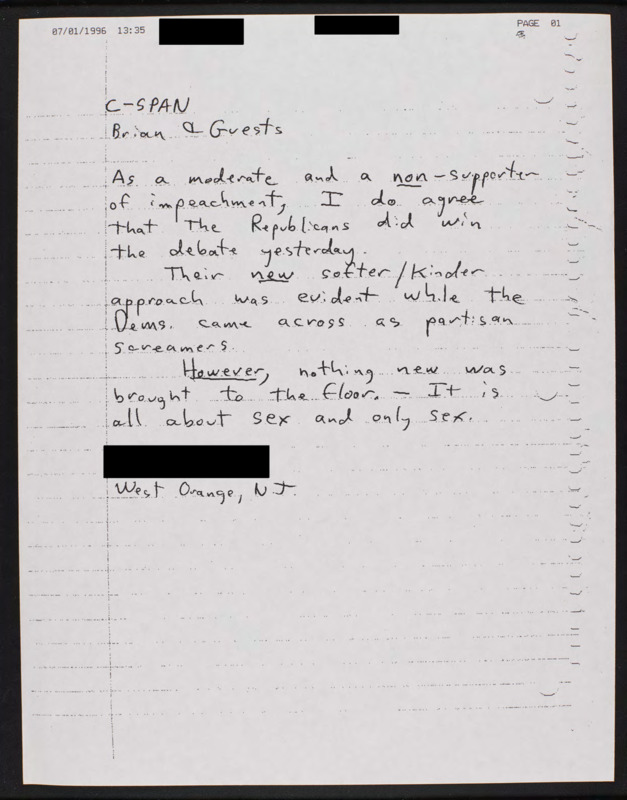 07/01/1996 13:35 PAGE 01
C-SPAN
Brian & Guests
As a moderate and a non-supporter
of impeachment, I do agree
that the Republicans did win
the debate yesterday.
Their new softer/kinder
approach was evident while the
Dems. came across as partisan
screamers.
However, nothing new was
brought to the floor. - It is
all about sex and only sex.
West Orange, NJ.